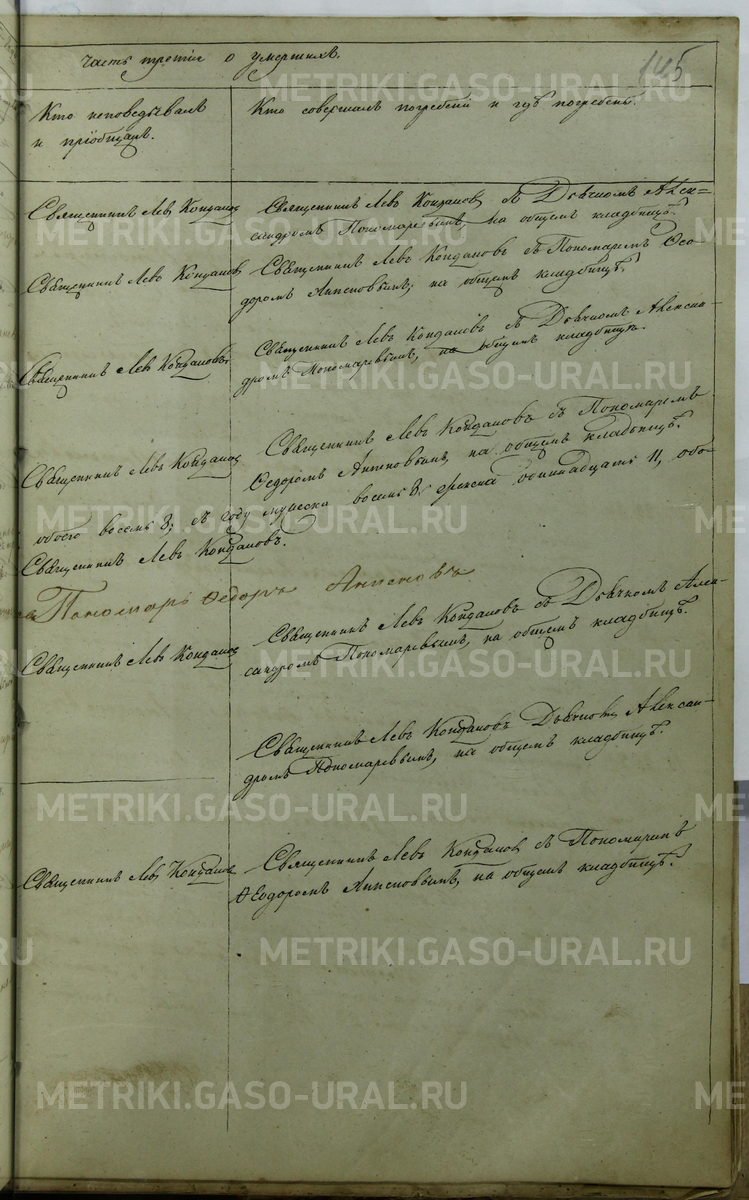 часть третія о умершихъ.
145
Кто исповѣдывалъ
и пріобщалъ.
Кто совершалъ погребеніе и гдѣ погребенъ.
Священникъ Левъ Кондаков
Священникъ Левъ Кондаковъ съ Дьячкомъ Алек=
сандромъ Пономаревымъ, на общемъ кладбищѣ.
Священникъ Левъ Кондаков
Священникъ Левъ Кондаковъ съ Пономаремъ Ѳео-
доромъ, на общемъ кладбищѣ.
Священникъ Левъ Кондаковъ
Священникъ Левъ Кондаковъ съ Дьячкомъ Алексан-
дромъ Пономаревымъ, на общемъ кладбищѣ.
Священникъ Левъ Кондаков
Священникъ Левъ Кондаковъ съ Пономаремъ
Ѳедоромъ, на общемъ кладбищѣ.
обоего восемь 8; въ году мужеска восемь 8, женска одинадцать 11, обо-
Священникъ Левъ Кондаковъ.
Пономарь Ѳедоръ
Священникъ Левъ Кондаков
Священникъ Левъ Кондаковъ съ Дьячкомъ Алек-
сандромъ Пономаревымъ, на общемъ кладбищѣ.
Священникъ Левъ Кондаковъ Дьячкомъ Алексан-
дромъ Пономаревымъ, на общемъ кладбищѣ.
Священникъ Левъ Кондаков
Священникъ Левъ Кондаков съ Пономаремъ
Ѳеодоромъ, на общемъ кладбищѣ.
METRIKI.GASO-URAL.RU